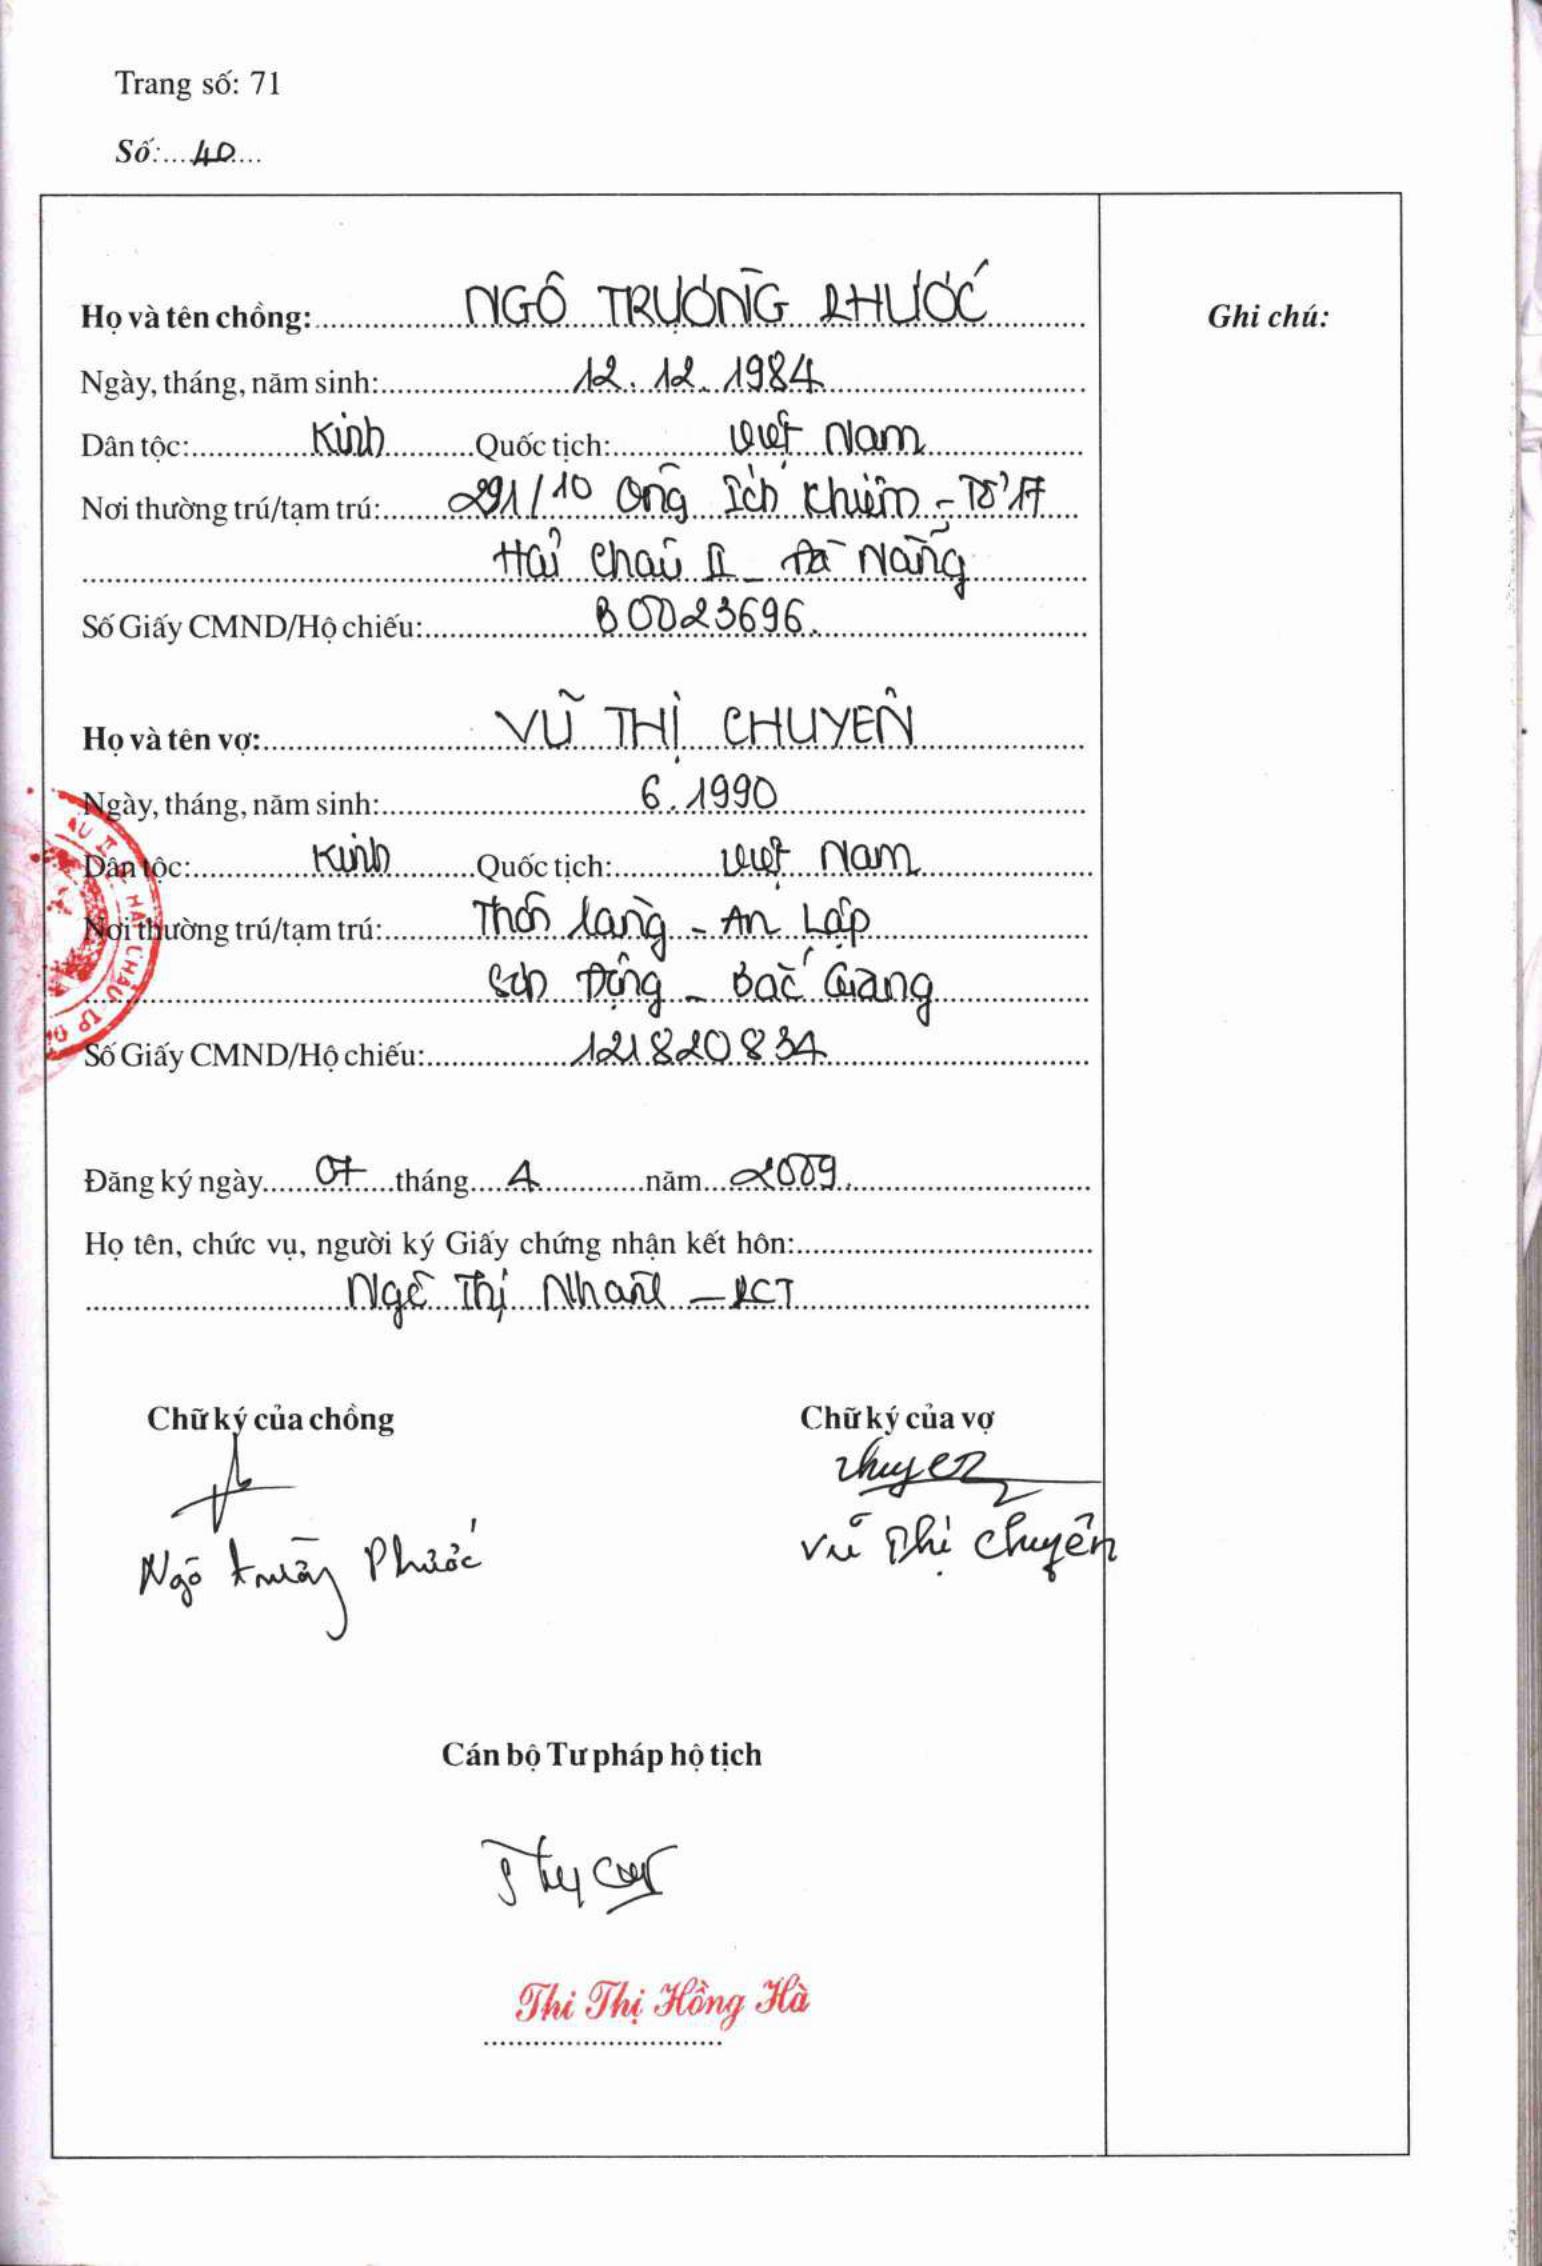 Trang số: 71
Số: 40
Họ và tên chồng: NGÔ TRƯỜNG PHƯỚC
Ghi chú:
Ngày, tháng, năm sinh: 12.12.1984
Dân tộc: Kinh Quốc tịch: Việt Nam
Nơi thường trú/tạm trú: 291/10 Ông Ích Khiêm - Tổ 17
Hải Châu II - Đà Nẵng
Số Giấy CMND/Hộ chiếu: B0023696.
Họ và tên vợ: VŨ THỊ CHUYÊN
Ngày, tháng, năm sinh: 6.1990
Dân tộc: Kinh Quốc tịch: Việt Nam
Nơi thường trú/tạm trú: Thôn Làng - An Lập
Sơn Động - Bắc Giang
Số Giấy CMND/Hộ chiếu: 121820834
Đăng ký ngày 07 tháng 4 năm 2009.
Họ tên, chức vụ, người ký Giấy chứng nhận kết hôn:
Ngô Thị Nhạn - PCT
Chữ ký của chồng Chữ ký của vợ
Chuyen
Ngô Trường Phước Vũ Thị Chuyên
Cán bộ Tư pháp hộ tịch
Thi Thị Hồng Hà